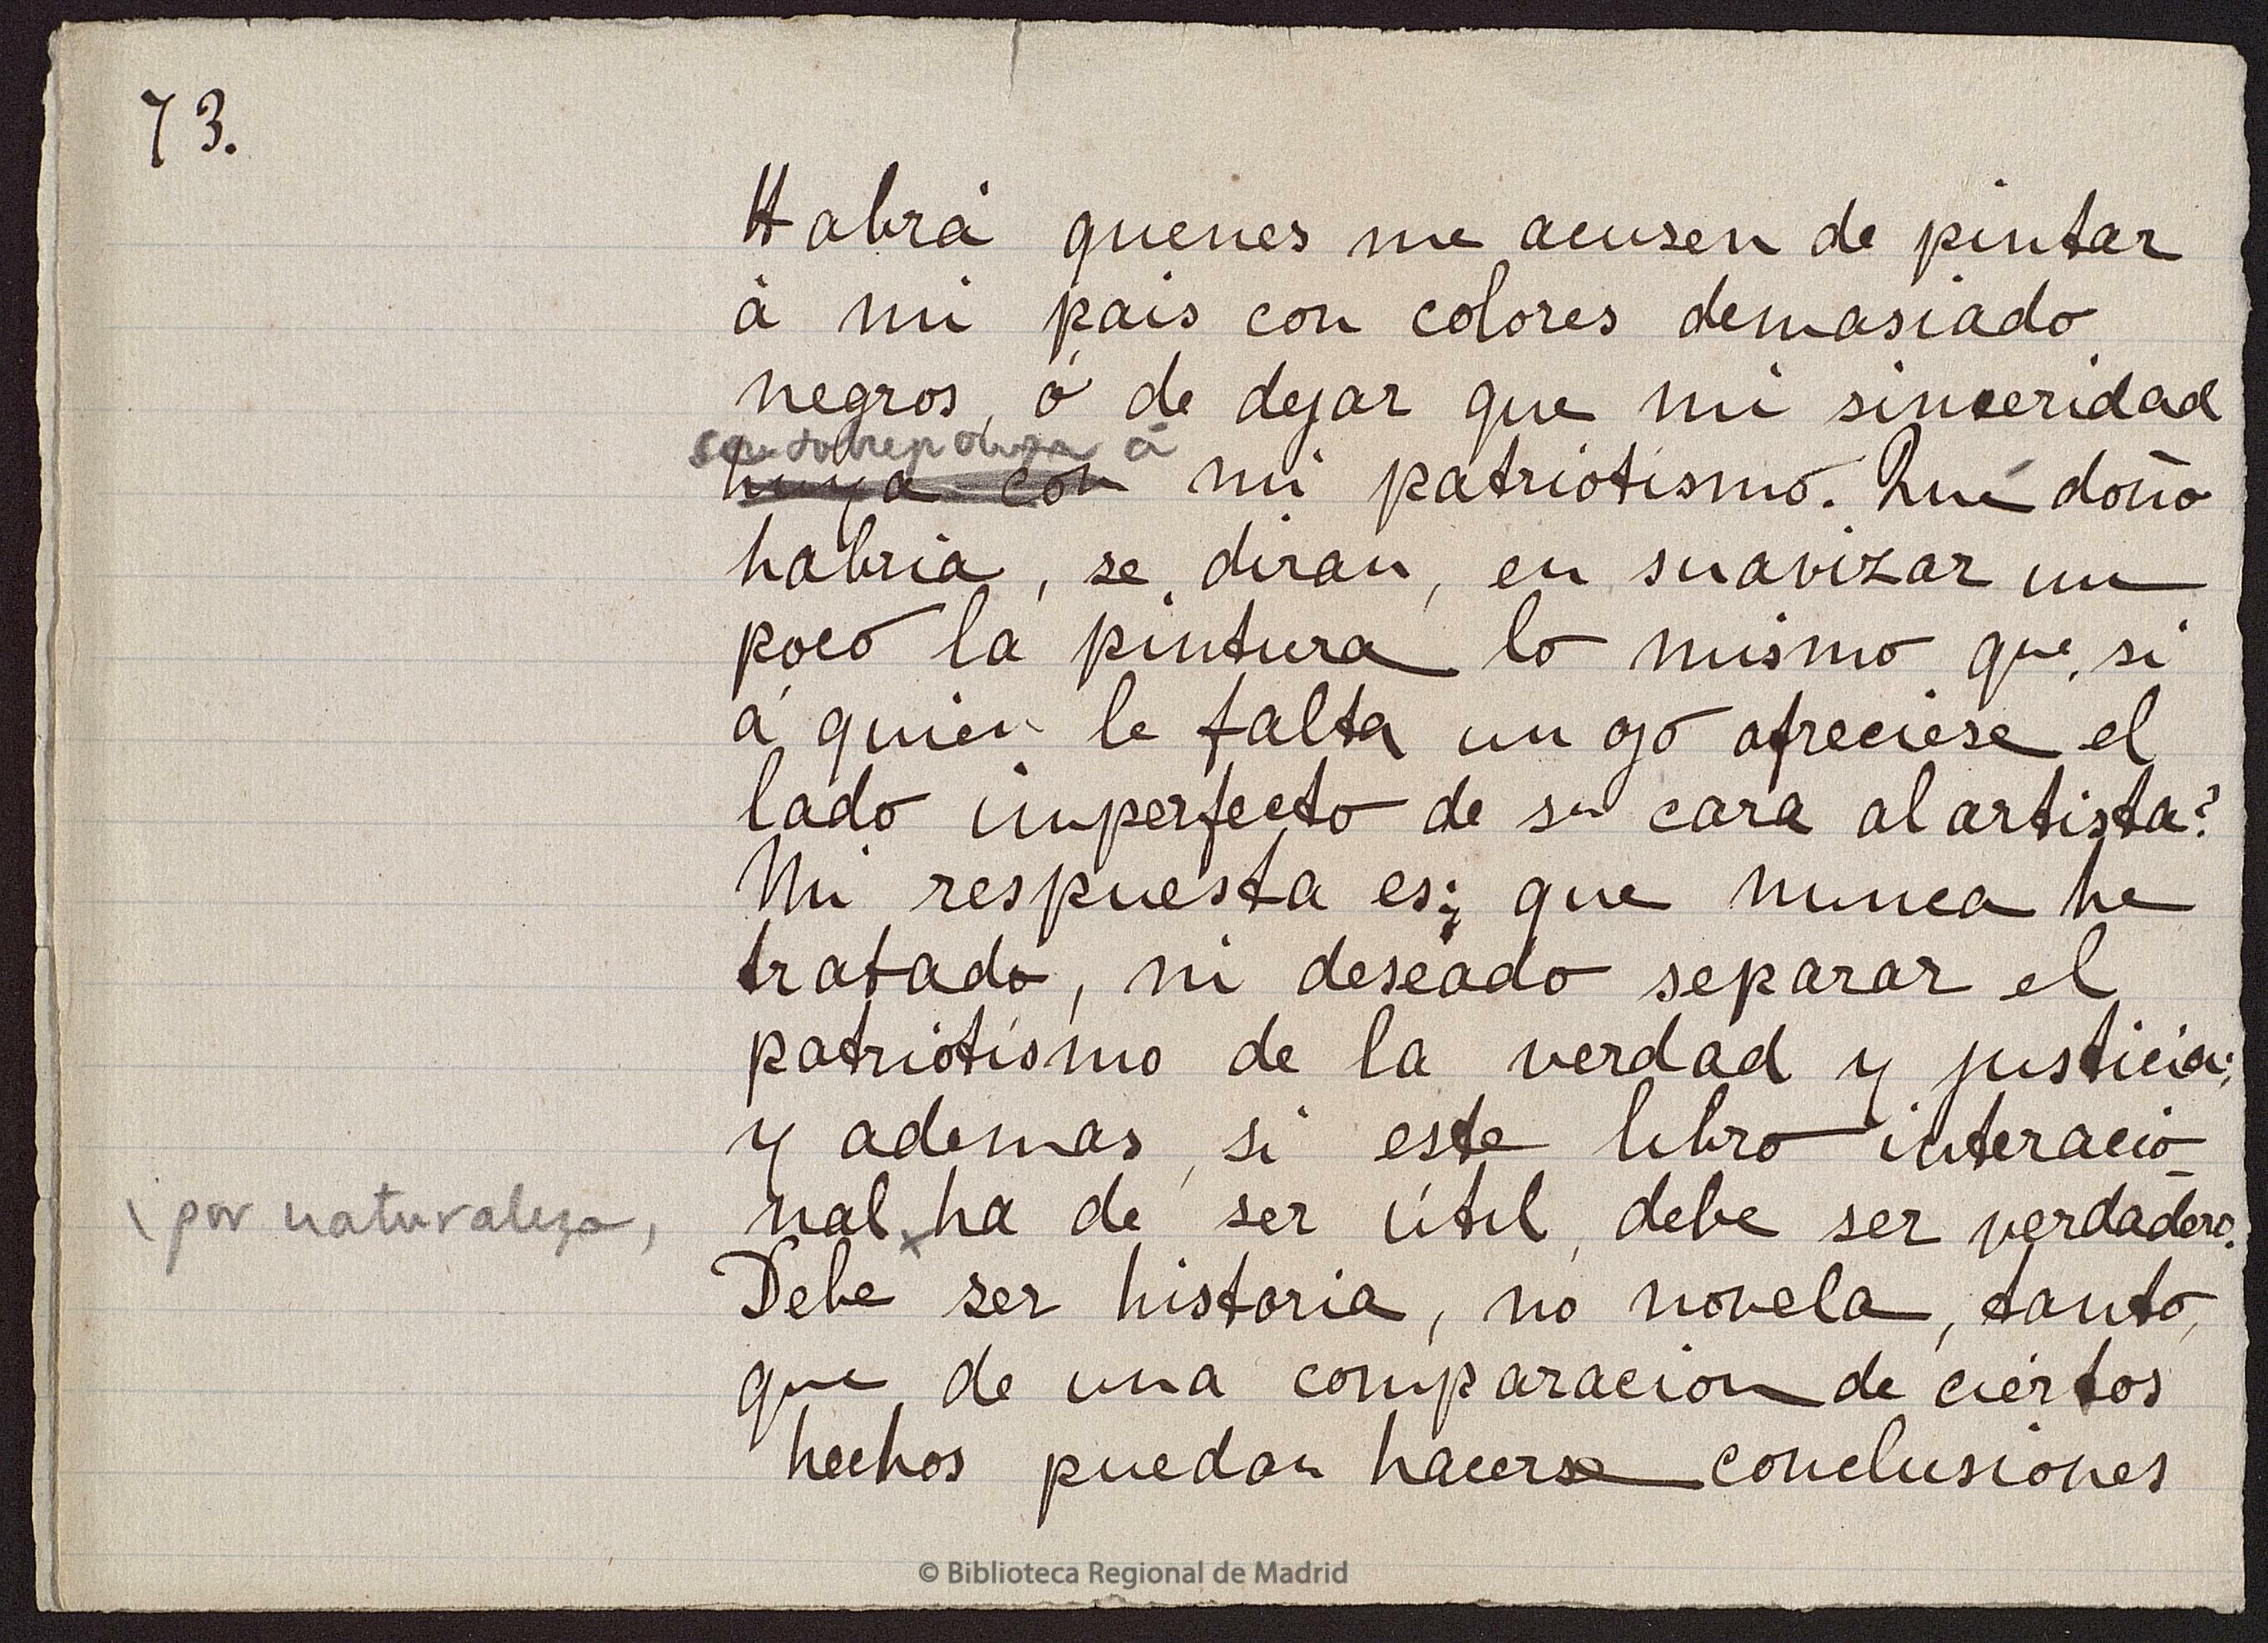 73.
Habrá quenes me acusen de pintar
á mi pais con colores demasiado
negros, ó de dejar que mi sinceridad
sobreponga á
huya con mi patriotismo. Qué doño
habria, se diran, en suavizar un
poco la pintura lo mismo que, si
á quien le falta un ojo ofreciese el
lado imperfecto de su cara al artista?
Mi respuesta es; que nunca he
tratado, ni deseado separar el
patriotismo de la verdad y justicia;
y ademas, si este libro interacio
nal ha de ser útil, debe ser verdadero.
por naturaleza,
Debe ser historia, no novela, tanto,
que de una comparacion de ciertos
hechos puedan hacerse conclusiones
© Biblioteca Regional de Madrid